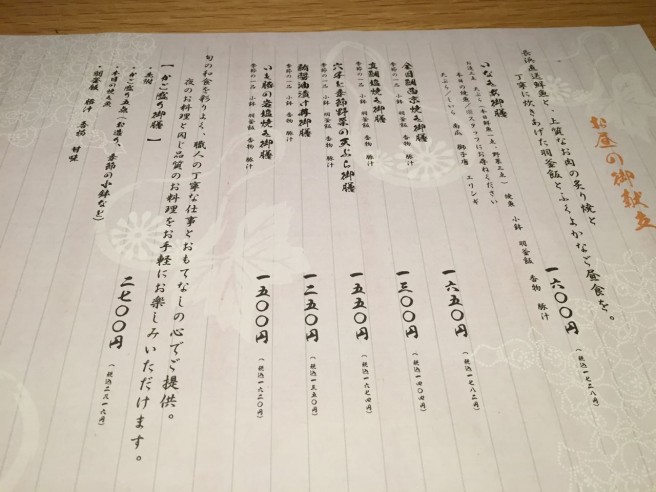 お昼の御献立
長浜直送鮮魚と、上質なお肉の炙り焼と
丁寧に炊きあげた羽釜飯とふくよかなご昼食を。
いなせ御膳
一六〇〇円
(税込一七二八円)
お造り三点 天ぷら(本日鮮魚一点・野菜三点) 焼魚 小鉢 羽釜飯 香物 豚汁
本日の焼魚/※スタッフにお尋ねください
天ぷら/しいら 南瓜 獅子唐 エリンギ
金目鯛西京焼き御膳
一六五〇円
季節の一品 小鉢 羽釜飯 香物 豚汁
真鯛塩焼き御膳
一三〇〇円
(税込一四〇四円)
季節の一品 小鉢 羽釜飯 香物 豚汁
穴子と季節野菜の天ぷら御膳
一五五〇円
(税込一六七四円)
季節の一品 小鉢 羽釜飯 香物 豚汁
鮪醤油漬け丼御膳
一二五〇円
(税込一三五〇円)
季節の一品 小鉢 香物 豚汁
いも豚の岩塩焼き御膳
一五〇〇円
(税込一六二〇円)
季節の一品 小鉢 羽釜飯 香物 豚汁
旬の和食を彩りよく、職人の丁寧な仕事とおもてなしの心でご提供。
夜のお料理と同じ品質のお料理をお手軽にお楽しみいただけます。
【 かご盛り御膳 】
二七〇〇円
(税込二九一六円)
・先附
・かご盛り五点(お造り、季節の小鉢など)
・本日の焼き魚
・羽釜飯 豚汁 香物 甘味